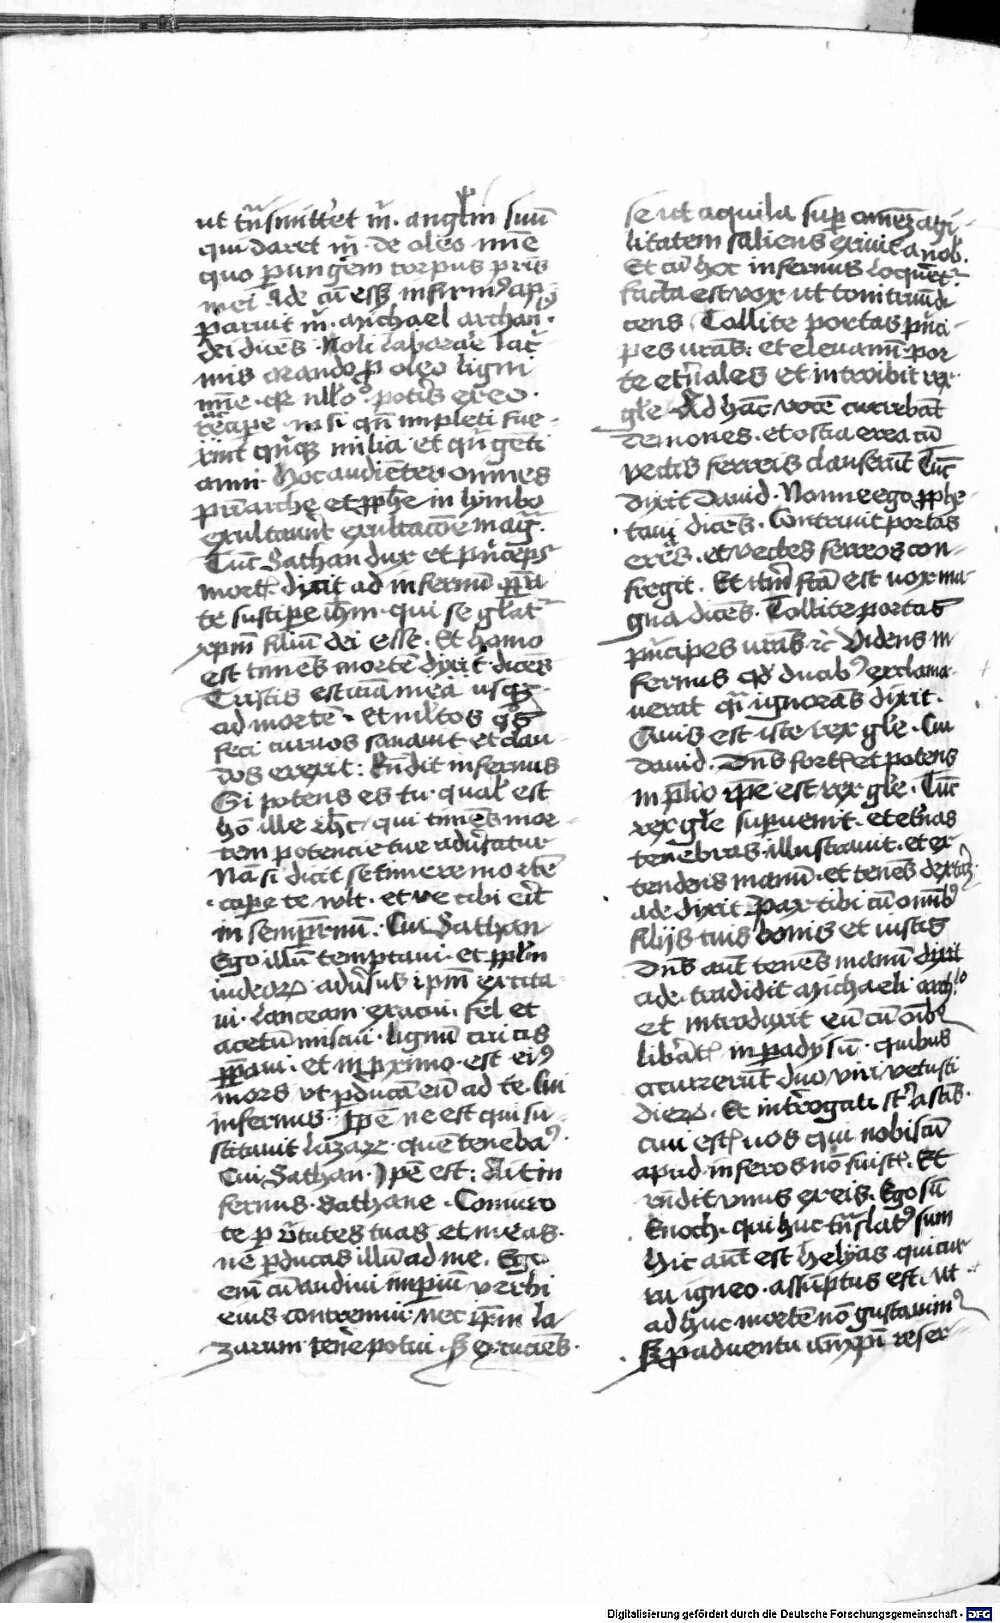 ut tn̄smittet m̄. angl̄m suū
qui daret m̄. de oleo mīe
quo perungem corpus pr̄is
mei Ade cū esset infirmꝰ ap-
paruit m̄. Michael archan̄.
dei dicēs. Noli laborare lac̄-
mis orando p oleo ligni
mīe. qr nll'o potis eo.
recipe. nisi qn̄ impleti fue-
rint qn̄qꝫ milia et qn̄gēti
anni. Hoc audientes omnes
pr̄iarche et pphe in lymbo
exultauer̄t exultacōe mag.
Tūc Sathan dux et prīceps
mort. dixit ad infernū para
te suscipe ih̄m. qui se gl̄at
xp̄m filiū dei esse. Et homo
est timēs mortē dixit dicēs
Tristis est aīa mea usqꝫ-
ad mortē. et ml̄tos qs
feci curuos sanauit et clau-
dos erexit: Rn̄dit infernus
Si potens es tu. qual' est
hō ille ih̄c, qui timēs mor-
tem potencie tue aduersatur
Nā si dicit se timere mortē
capere te wlt. et ve tibi erit
in sempitnū. Cui Sathan
Ego illū temptaui. et ppl̄m
iudeoꝝ aduersus ipm̄ excita-
ui. Lanceam exacui. fel et
acetū miscui. lignū crucis
ppaui. et in pximo. est eiꝰ
mors ut pducā eū ad te. Cui
infernus. Ipe ne est qui su-
scitauit Lazaꝝ. quē tenebaꝫ.
Cui Sathan. Ipe est: Ait in
fernus Sathane. Coniuro
te p v̄tutes tuas et meas.
ne pducas illū ad me. Ego
em̄ cū audiui imperiū verbi
eius contremui. nec ipm̄ la-
zarum tenē potui. sꝫ excuciēs.
se ut aquila sup omnē agi-
litatem saliens exiuit a nob.
Et cū hoc infernus loqueret
facta est vox ut tonitruū di
cens Tollite portas pn̄ci-
pes ur̄as. et eleuamī por
te et'nales et introibit rex
gl̄e. Ad hāc vocē currebāt
demones. et ostia erea cū
vectis ferreis clauserūt Tūc
dixit Dauid. Nonne ego pphe-
taui dicēs. Contriuit portas
ereas. et vectes ferros con-
fregit. Et itm̄ fca est vox ma-
gna dicēs. Tollite portas
pn̄cipes ur̄as zc̄ Videns in
fernus qd ducabꝰ exclama-
uerat q̄i ignorās dixit.
Quis est iste rex gl̄e. Cui
Dauid. Dn̄s fort et potens
in p̄lio ipe est rex gl̄e. Tūc
rex gl̄e superuenit. et et'nas
tenebras illustrauit. et ex-
tendens manū. et tenēs dextā
ade dixit Pax tibi cū omibꝰ
filijs tuis bonis et iustis
Dn̄s aut tenēs manū
ade. tradidit Michaeli arch.lo
et introduxit eū cū oībꝫ
libat in padysū. quibus
occurrerūt duo viri vetusti
dieꝝ. Et introgati st' a sctis.
Qui est uos qui nobiscū
apud inferos nō fuist. Et
rn̄dit vnus ex eis. Ego sū
Enoch. qui huc tn̄slatꝰ sum
Hic aut est helyas. qui cur
ru igneo. assumptus est. ut
adhuc mortē nō gustauimꝰ
sꝫ p aduentu anxp̄i reser-